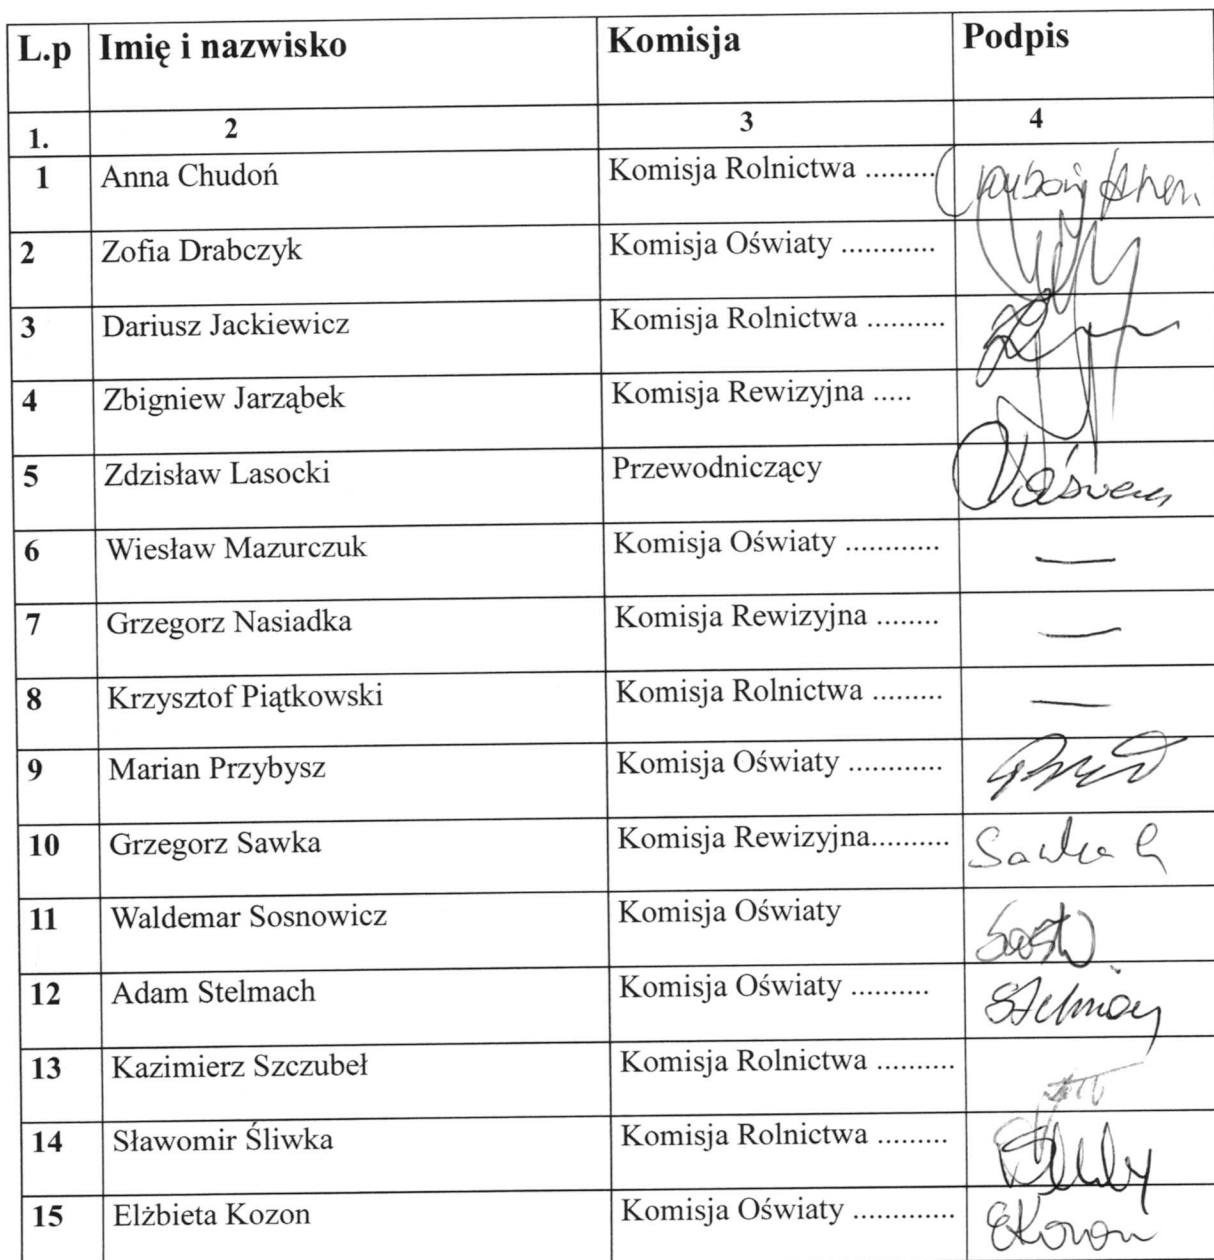 L.p Imię i nazwisko Komisja Podpis
1. 2 3 4
1 Anna Chudoń Komisja Rolnictwa ......... Chudoń Anna
2 Zofia Drabczyk Komisja Oświaty ............
3 Dariusz Jackiewicz Komisja Rolnictwa ..........
4 Zbigniew Jarząbek Komisja Rewizyjna .....
5 Zdzisław Lasocki Przewodniczący
6 Wiesław Mazurczuk Komisja Oświaty ............ —
7 Grzegorz Nasiadka Komisja Rewizyjna ........ —
8 Krzysztof Piątkowski Komisja Rolnictwa ......... —
9 Marian Przybysz Komisja Oświaty ............
10 Grzegorz Sawka Komisja Rewizyjna.......... Sawka G
11 Waldemar Sosnowicz Komisja Oświaty
12 Adam Stelmach Komisja Oświaty .......... Stelmach
13 Kazimierz Szczubeł Komisja Rolnictwa ..........
14 Sławomir Śliwka Komisja Rolnictwa .........
15 Elżbieta Kozon Komisja Oświaty ............. EKozon